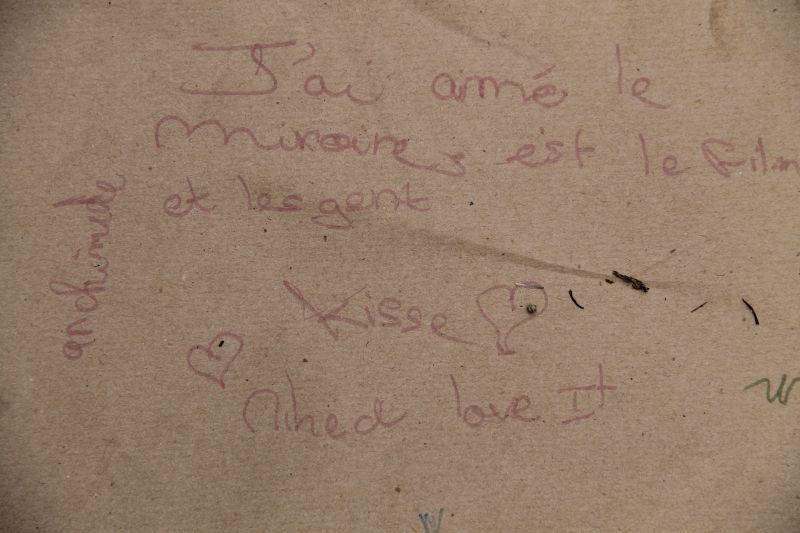 J'ai aimé le
miroires est le film
et les gent
Kisse
Nihed love It
archimède